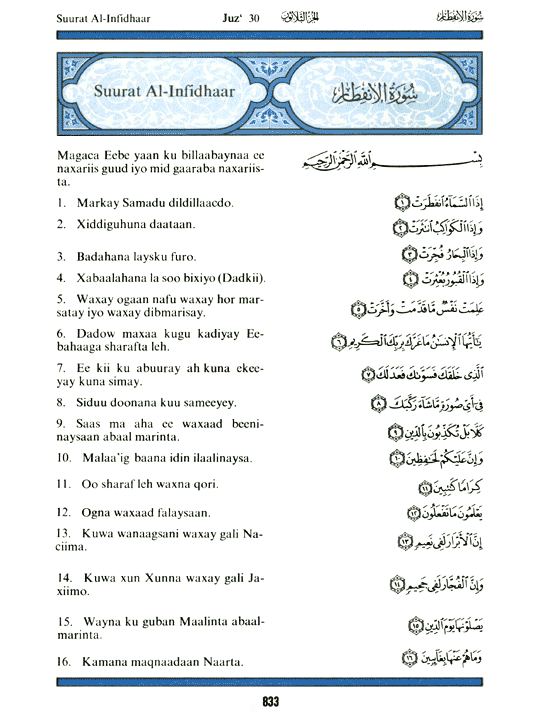 Suurat Al-Infidhaar Juz‘ 30 الجزء الثلاثون سورة الانفطار
Suurat Al-Infidhaar سورة الانفطار
Magaca Eebe yaan ku billaabaynaa ee
naxariis guud iyo mid gaaraba naxariis-
ta.
بِسْمِ اللَّهِ الرَّحْمَٰنِ الرَّحِيمِ
1. Markay Samadu dildillaacdo.
إِذَا السَّمَاءُ انفَطَرَتْ ١
2. Xiddiguhuna daataan.
وَإِذَا الْكَوَاكِبُ انتَثَرَتْ ٢
3. Badahana laysku furo.
وَإِذَا الْبِحَارُ فُجِّرَتْ ٣
4. Xabaalahana la soo bixiyo (Dadkii).
وَإِذَا الْقُبُورُ بُعْثِرَتْ ٤
5. Waxay ogaan nafu waxay hor mar-
satay iyo waxay dibmarisay.
عَلِمَتْ نَفْسٌ مَّا قَدَّمَتْ وَأَخَّرَتْ ٥
6. Dadow maxaa kugu kadiyay Ee-
bahaaga sharafta leh.
يَا أَيُّهَا الْإِنسَانُ مَا غَرَّكَ بِرَبِّكَ الْكَرِيمِ ٦
7. Ee kii ku abuuray ah kuna ekee-
yay kuna simay.
الَّذِي خَلَقَكَ فَسَوَّاكَ فَعَدَلَكَ ٧
8. Siduu doonana kuu sameeyey.
فِي أَيِّ صُورَةٍ مَّا شَاءَ رَكَّبَكَ ٨
9. Saas ma aha ee waxaad beeni-
naysaan abaal marinta.
كَلَّا بَلْ تُكَذِّبُونَ بِالدِّينِ ٩
10. Malaa'ig baana idin ilaalinaysa.
وَإِنَّ عَلَيْكُمْ لَحَافِظِينَ ١٠
11. Oo sharaf leh waxna qori.
كِرَامًا كَاتِبِينَ ١١
12. Ogna waxaad falaysaan.
يَعْلَمُونَ مَا تَفْعَلُونَ ١٢
13. Kuwa wanaagsani waxay gali Na-
ciima.
إِنَّ الْأَبْرَارَ لَفِي نَعِيمٍ ١٣
14. Kuwa xun Xunna waxay gali Ja-
xiimo.
وَإِنَّ الْفُجَّارَ لَفِي جَحِيمٍ ١٤
15. Wayna ku guban Maalinta abaal-
marinta.
يَصْلَوْنَهَا يَوْمَ الدِّينِ ١٥
16. Kamana maqnaadaan Naarta.
وَمَا هُمْ عَنْهَا بِغَائِبِينَ ١٦
833